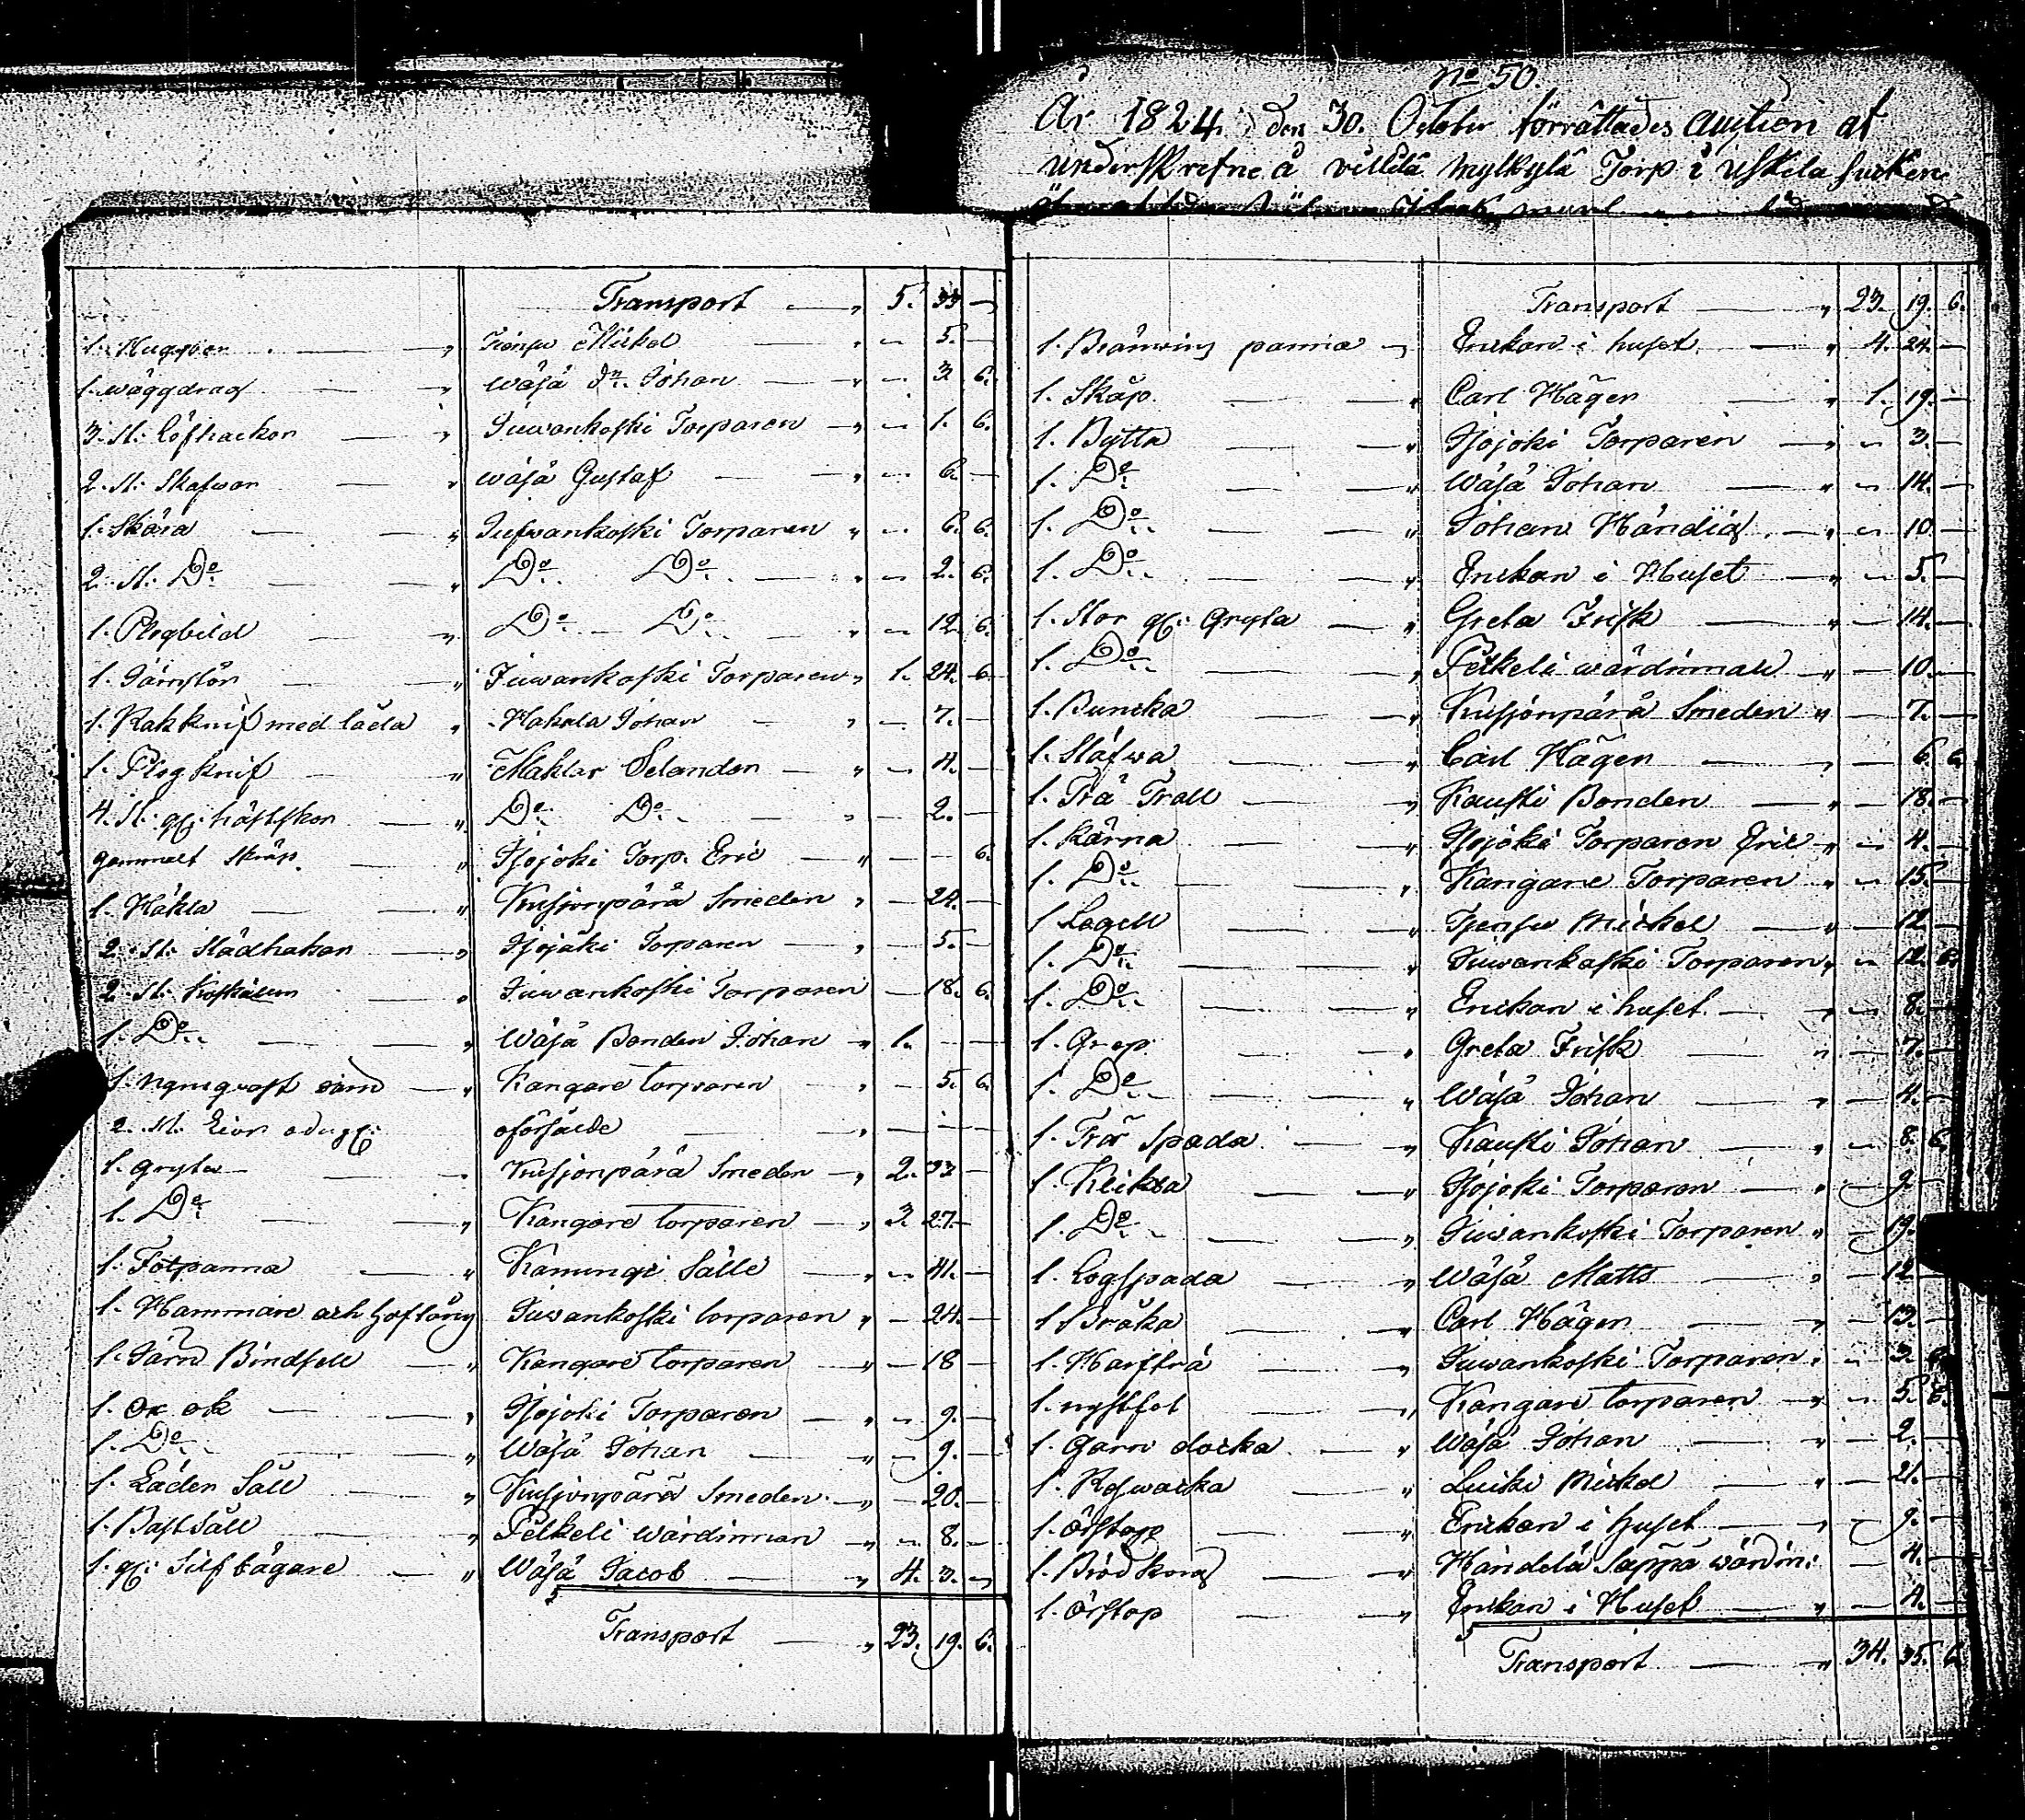 No 50.
År 1824. den 30. October förrättades Auction af
underskrefne å villilä mylkylä Torp i Uskela socken
Transport — " 5. 33 —
1. Hugg — " Mickel — " — 5. —
1. wäggdrag — " Wäsä Dn. Johan — " — 3 6.
3. st: Löfhackor — " Juwankoski Torparen — " — 1. 6.
2. st: Skafwor — " Wäsä Gustaf — " — 6. —
1. Skära — " Jufwankoski Torparen " — 6. 6.
2. st: Do — " Do Do — " — 2. 6.
1. Plogbild — " Do Do — " — 12 6.
1. Järnstör — " Juwankoski Torparen " 1. 24. 6.
1. Rakknif med låda " Hakala Johan — " — 7. —
1. Plog knif — " Mäklar Selander — " — 4. —
4. st: gl: hästskor — " Do Do — " — 2. —
gammalt skräp — " Isojoki Torp. Eric — " — — 6.
1. Häkla — " Kusjonpärä Smeden " — 24. —
2. st: Slädhakar — " Isojoki Torparen — " — 5. —
2. st: — " Juwankoski Torparen — 18. 6.
1. Do — " Wäsä Bonden Johan " 1. — —
1. — " Kangare torparen " — 5. 6.
2. st. Liar odugl: oförsålde " — — —
1. gryta — " Kusjonpärä Smeden — " 2. 33 —
1. Do — " Kangare torparen — " 3. 27. —
1. Fotpanna — " Sälle — " — 41. —
1. Hammare och hoftång Juwankoski torparen " — 24. —
1. Järn Bindsell — " Kangare torparen — " — 18 —
1. Ox ok — " Isojoki Torparen — " — 9. —
1. Do — " Wäsä Johan — " — 9. —
1. Läder Såll — " Kusjonpärä Smeden — " — 20. —
1. Bast Såll — " Pelkeli wärdinnan — " — 8. —
1. gl: Silfbägare — " Wäsä Jacob — " 4. 3. —
Transport — " 23. 19. 6.
Transport — " 23. 19. 6.
1. Bränwins panna — " Enckan i huset — " 4. 24. —
1. Skåp — " Carl Hägen — " 1. 19. —
1. Bytta — " Isojoki Torparen — " — 3. —
1. Do — " Wäsä Johan — " — 14. —
1. Do — " Johan — " — 10. —
1. Do — " Enckan i Huset — " — 5. —
1. Stor gl: Gryta — " Greta Frisk — " — 14. —
1. Do — " Pelkeli wärdinnan " — 10. —
1. Buncka — " Kusjonpärä Smeden " — 7. —
1. Stäfwa — " Carl Hägen — " — 6. 6
1. Trä Trall — " Kauski Bonden — " — 18. —
1. Kärna — " Isojoki Torparen Eric " — 4. —
1. Do — " Kangare Torparen " — 15. —
1 Lagell — " Mickel — " — 12 —
1. Do — " Juwankoski Torparen " — 12. 6.
1. Do — " Enckan i huset — " — 8. —
1. Grep — " Greta Frisk — " — 7. —
1. Do — " Wäsä Johan — " — 4. —
1. Trä spada — " Kauski Johan — " — 8. 6
1. — " Isojoki Torparen — " — 9. —
1. Do — " Juwankoski Torparen " — 19.
1. Logspada — " Wäsä Matts — " — 12 —
1 Bråka — " Carl Hägen — " — 13. —
1. Harfträ — " Juwankoski Torparen " — 3. 6.
1. nystfot — " Kangare torparen — " — 5. 6.
1. Garn docka — " Wäsä Johan — " — 2. —
1. — " Mickel — " — 21. —
1. Ölstop — " Enckan i huset — " — 9. —
1. Brödkorg — " wärdin: — 4. —
1. Ölstop — " Enckan i Huset — " — 4. —
Transport — " 34. 35. 6